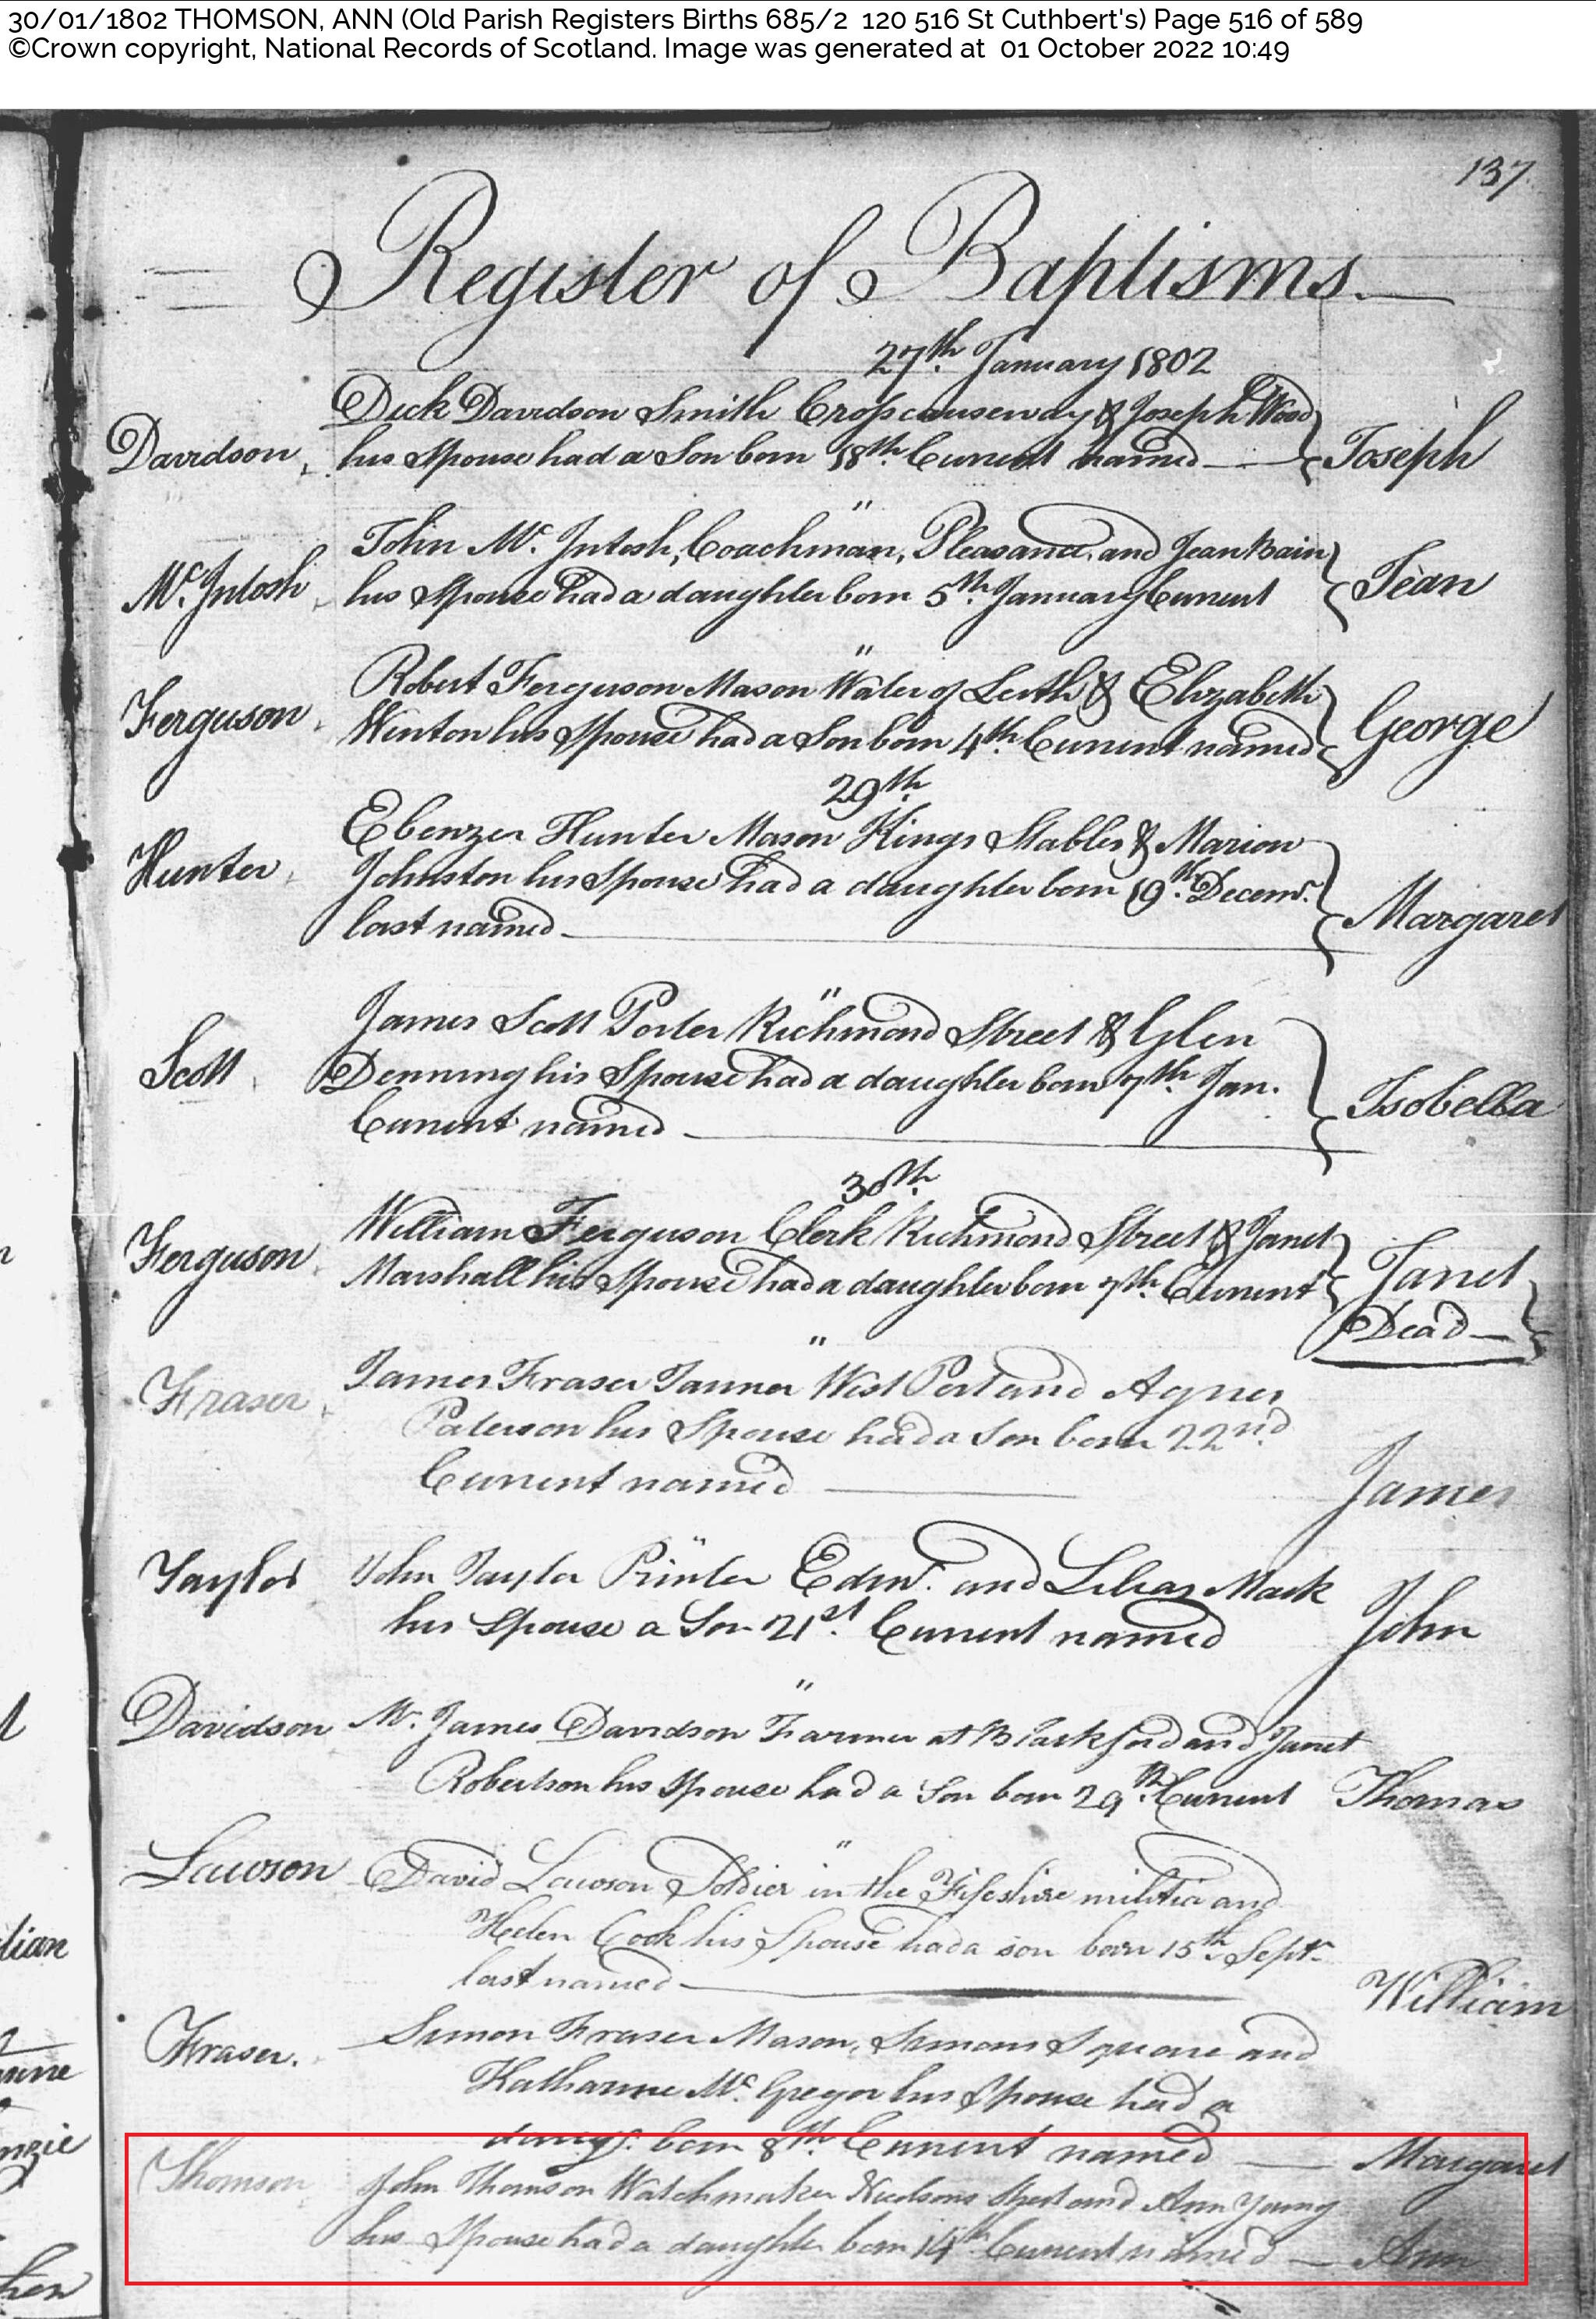 30/01/1802 THOMSON, ANN (Old Parish Registers Births 685/2 120 516 St Cuthbert's) Page 516 of 589
©Crown copyright, National Records of Scotland. Image was generated at 01 October 2022 10:49
137
Register of Baptisms.
27th. January 1802
Dick Davidson Smith Crosscauseway & Joseph Wood
Davidson his Spouse had a Son born 18th. Current named Joseph
"
John Mc. Intosh, Coachman, Pleasance and Jean Bain
Mc. Intosh his Spouse had a daughter born 5th. January Current Jean
"
Robert Ferguson Mason Water of Leith & Elizabeth
Ferguson Winton his Spouse had a Son born 4th. Current named George
29th.
Ebenzer Hunter Mason Kings Stables & Marion
Hunter Johnston his Spouse had a daughter born 19th. Decemr.
last named Margaret
"
James Scott Porter Richmond Street & Glen
Scott Denning his Spouse had a daughter born 7th. Jan.
Current named Isobella
30th.
William Ferguson Clerk Richmond Street & Janet
Ferguson Marshall his Spouse had a daughter born 7th. Current Janet
Dead
"
Fraser James Fraser Tanner West Port and Agnes
Paterson his Spouse had a Son born 22nd.
Current named James
"
Taylor John Taylor Printer Edinr. and Lilias Mack
his Spouse a Son 21st. Current named John
"
Davidson Mr. James Davidson Farmer at Blackford and Janet
Robertson his Spouse had a Son born 29th. Current Thomas
"
Lawson David Lawson Soldier in the Fifeshire militia and
Helen Cook his Spouse had a son born 15th. Septr.
last named William
Fraser. Simon Fraser Mason, Simons Square and
Katharine Mc. Gregor his Spouse had a
daugr. born 8th. Current named Margaret
Thomson John Thomson Watchmaker Street and Ann Young
his Spouse had a daughter born 14th Current named Ann